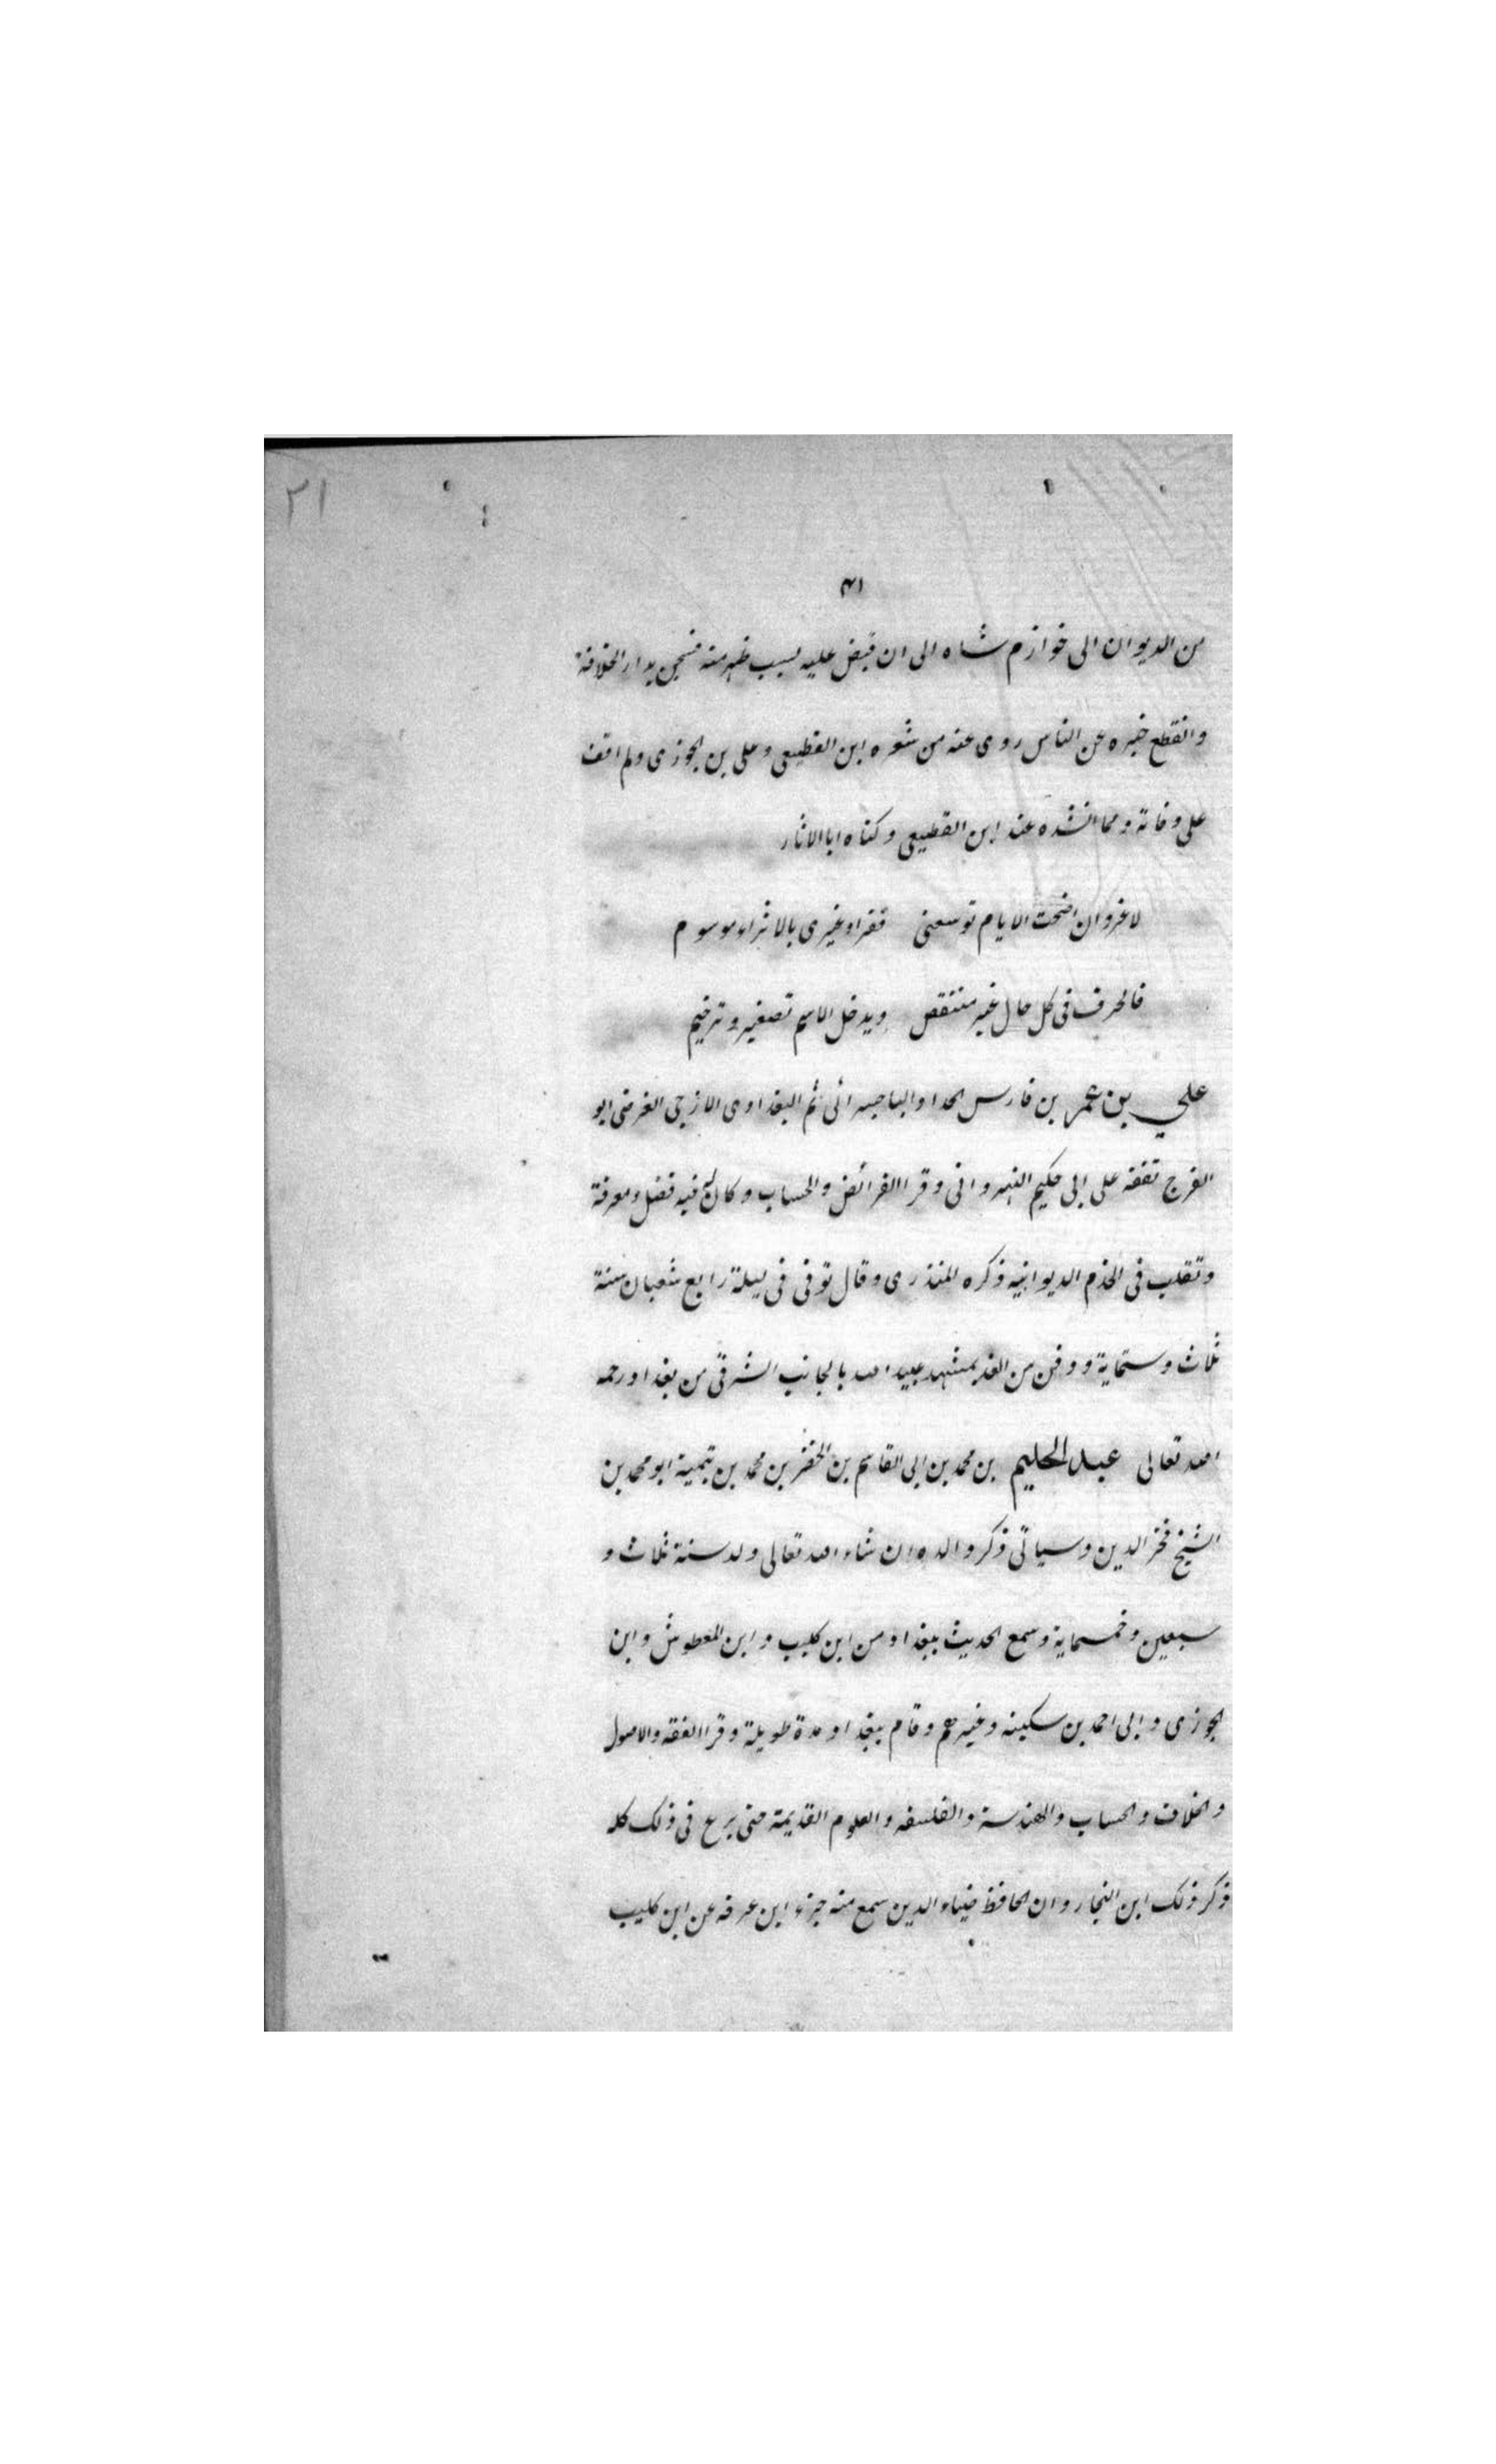 ٢١
٤١
من الديوان الى خوارزم شاه الى ان قبض عليه بسبب ظهر منه فسجن بدار الخلافة
وانقطع خبره عن الناس روى عنه من شعره ابن القطيعى وعلى بن الجوزى ولم اقف
على وفاته ومما انشده عند ابن القطيعى وكناه ابا الاثار
لا غرو ان اضحت الايام توسعنى فقرا وغيرى بالاثراء موسوم
فالحرف فى كل حال غير منتقص ويدخل الاسم تصغير وترخيم
علي بن عمر بن فارس الحداد الباجسرائى ثم البغدادى الازجى الفرضى ابو
الفرج تفقه على ابى حكيم النهروانى وقرا الفرائض والحساب وكان له فيه فضل ومعرفة
وتقلب فى الخدم الديوانيه ذكره المنذرى وقال توفى فى ليلة رابع شعبان سنة
ثلاث وستماية ودفن من الغد بمشهد عبيد الله بالجانب الشرقى من بغداد رحمه
الله تعالى عبد الحليم بن محمد بن ابى القاسم بن الخضر بن محمد بن تيمية ابو محمد بن
الشيخ فخر الدين وسياتى ذكر والده ان شاء الله تعالى ولد سنة ثلاث و
سبعين وخمسماية وسمع الحديث ببغداد من ابن كليب وابن المعطوش وابن
الجوزى وابى احمد بن سكينه وغيرهم وقام ببغداد مدة طويلة وقرا الفقه والاصول
والخلاف والحساب والهندسة والفلسفه والعلوم القديمة حتى برع فى ذلك كله
ذكر ذلك ابن النجار وان الحافظ ضياء الدين سمع منه جزء ابن عرفه عن ابن كليب